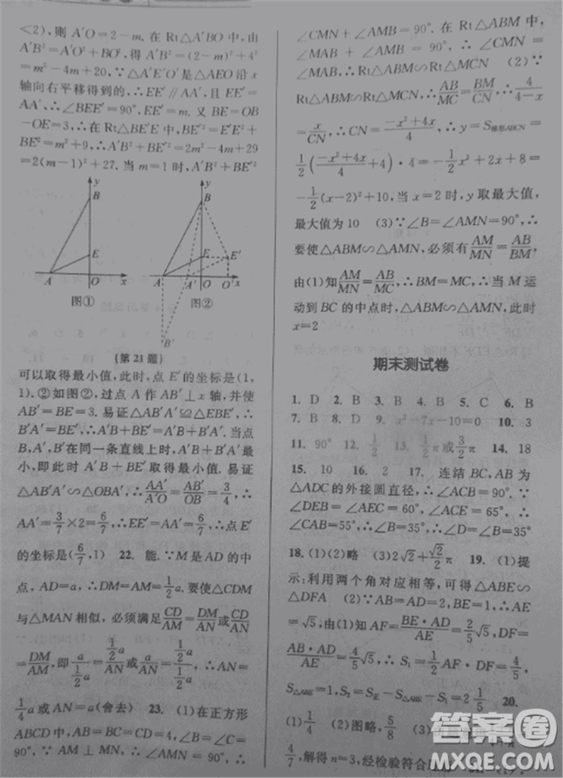 <2),则 A′O=2-m. 在 Rt△A′BO 中,由
A′B²=A′O²+BO²,得 A′B²=(2-m)²+4²
=m²-4m+20,∵△A′E′O′是△AEO 沿 x
轴向右平移得到的,∴EE′∥AA′,且 EE′=
AA′,∴∠BEE′=90°,EE′=m. 又 BE=OB
-OE=3,∴在 Rt△BE′E 中,BE′²=E′E²+
BE²=m²+9,∴A′B²+BE′²=2m²-4m+29
=2(m-1)²+27. 当 m=1 时,A′B²+BE′²
y
B
E
A
O
x
图①
y
B
E
E′
A
A′
O
O′
x
B′
图②
(第 21 题)
可以取得最小值,此时,点 E′的坐标是(1,
1). ②如图②,过点 A 作 AB′⊥x 轴,并使
AB′=BE=3. 易证△AB′A′≌△EBE′,
∴B′A′=BE′,∴A′B+BE′=A′B+B′A′. 当点
B,A′,B′在同一条直线上时,A′B+B′A′最
小,即此时 A′B+BE′取得最小值. 易证
△AB′A′∽△OBA′,∴AA′/A′O=AB′/OB=3/4,∴
AA′=3/7×2=6/7,∴EE′=AA′=6/7,∴点 E′
的坐标是(6/7,1) 22. 能. ∵M 是 AD 的中
点,AD=a,∴DM=AM=1/2a. 要使△CDM
与△MAN 相似,必须满足CD/AM=DM/AN或CD/AN
=DM/AM,即a/(1/2a)=(1/2a)/AN或a/AN=(1/2a)/(1/2a). ∴AN=
1/4a 或 AN=a(舍去) 23. (1)在正方形
ABCD 中,AB=BC=CD=4,∠B=∠C=
90°,∵AM⊥MN,∴∠AMN=90°,∴
∠CMN+∠AMB=90°. 在 Rt△ABM 中,
∠MAB+∠AMB=90°,∴∠CMN=
∠MAB,∴Rt△ABM∽Rt△MCN (2)∵
Rt△ABM∽Rt△MCN,∴AB/MC=BM/CN,∴4/(4-x)
=x/CN,∴CN=(-x²+4x)/4,∴y=S梯形ABCN=
1/2((-x²+4x)/4+4)·4=-1/2x²+2x+8=
-1/2(x-2)²+10,当 x=2 时,y 取最大值,
最大值为 10 (3)∵∠B=∠AMN=90°,∴
要使△ABM∽△AMN,必须有AM/MN=AB/BM,
由(1)知AM/MN=AB/MC,∴BM=MC,∴当 M 运
动到 BC 的中点时,△ABM∽△AMN,此时
x=2
期末测试卷
1. D 2. B 3. B 4. B 5. C 6. B
7. B 8. D 9. x²-7x-10=0 10. 3
11. 90° 12. 1/2 13. 1/2π或3/2π 14. 18
15. 10 16. 2 17. 连结 BC,AB 为
△ADC 的外接圆直径,∴∠ACB=90°,
∵∠DEB=∠AEC=60°,∠ACE=65°,∴
∠CAB=55°,∴∠ABC=35°,∴∠ADC=35°
18. (1)(2)略 (3)2√2+√2/2π 19. (1)提
示:利用两个角对应相等,可得△ABE∽
△DFA (2)∵AB=2,BE=1,∴AE=
√5,由(1),得AF=BE·AD/AE=√5,DF=
AB·AD/AE=4/5√5,∴S₁=1/2AF·DF=4/5,
S△ABE=1,∴S₂=S矩-S△ABE-S₁=2 1/5 20.
(1)1/2 (2)图略,5/8 (3)由题意得
4/7,解得 n=3,经检验符合
答案圈